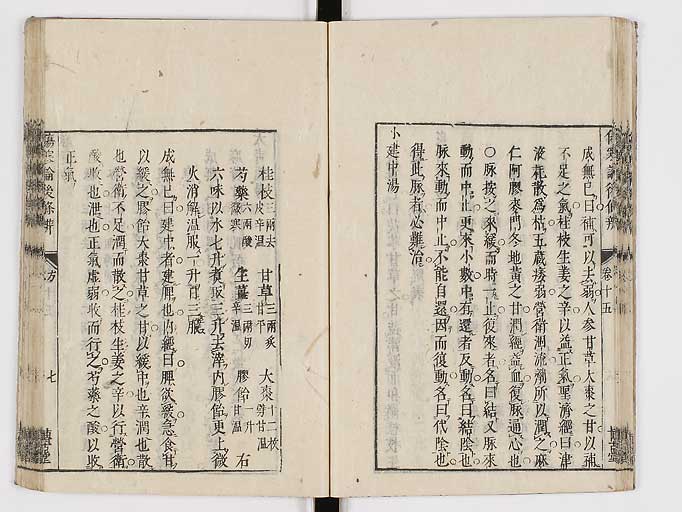 卷十五
成無己曰補可以去弱人參甘草大棗之甘以補
不足之氣桂枝生姜之辛以益正氣聖濟經曰津
液散爲枯五藏痿弱營衛涸流濕所以潤之麻
仁阿膠麥門冬地黃之甘潤經益血復脉通心也
○脉按之來緩而時一止復來者名曰結又脉來
動而中止更來小數中有還者反動名曰結陰也
脉來動而中止不能自還因而復動名曰代陰也
得此脉者必難治
小建中湯
桂枝三兩去皮辛温 甘草三兩炙甘平 大棗十二枚擘甘温
芍藥六兩酸微寒 生薑三兩切辛温 膠飴一升甘温 右
六味以水七升煮取三升去滓内膠飴更上微
火消解温服一升日三服
成無己曰建中者建脾也内經曰脾欲緩急食甘
以緩之膠飴大棗甘草之甘以緩中也辛潤也散
也營衛不足潤而散之桂枝生姜之辛以行營衛
酸收也泄也正氣虛弱收而行之芍藥之酸以收
正氣
傷寒論後條辨
方
十五
七
博古堂